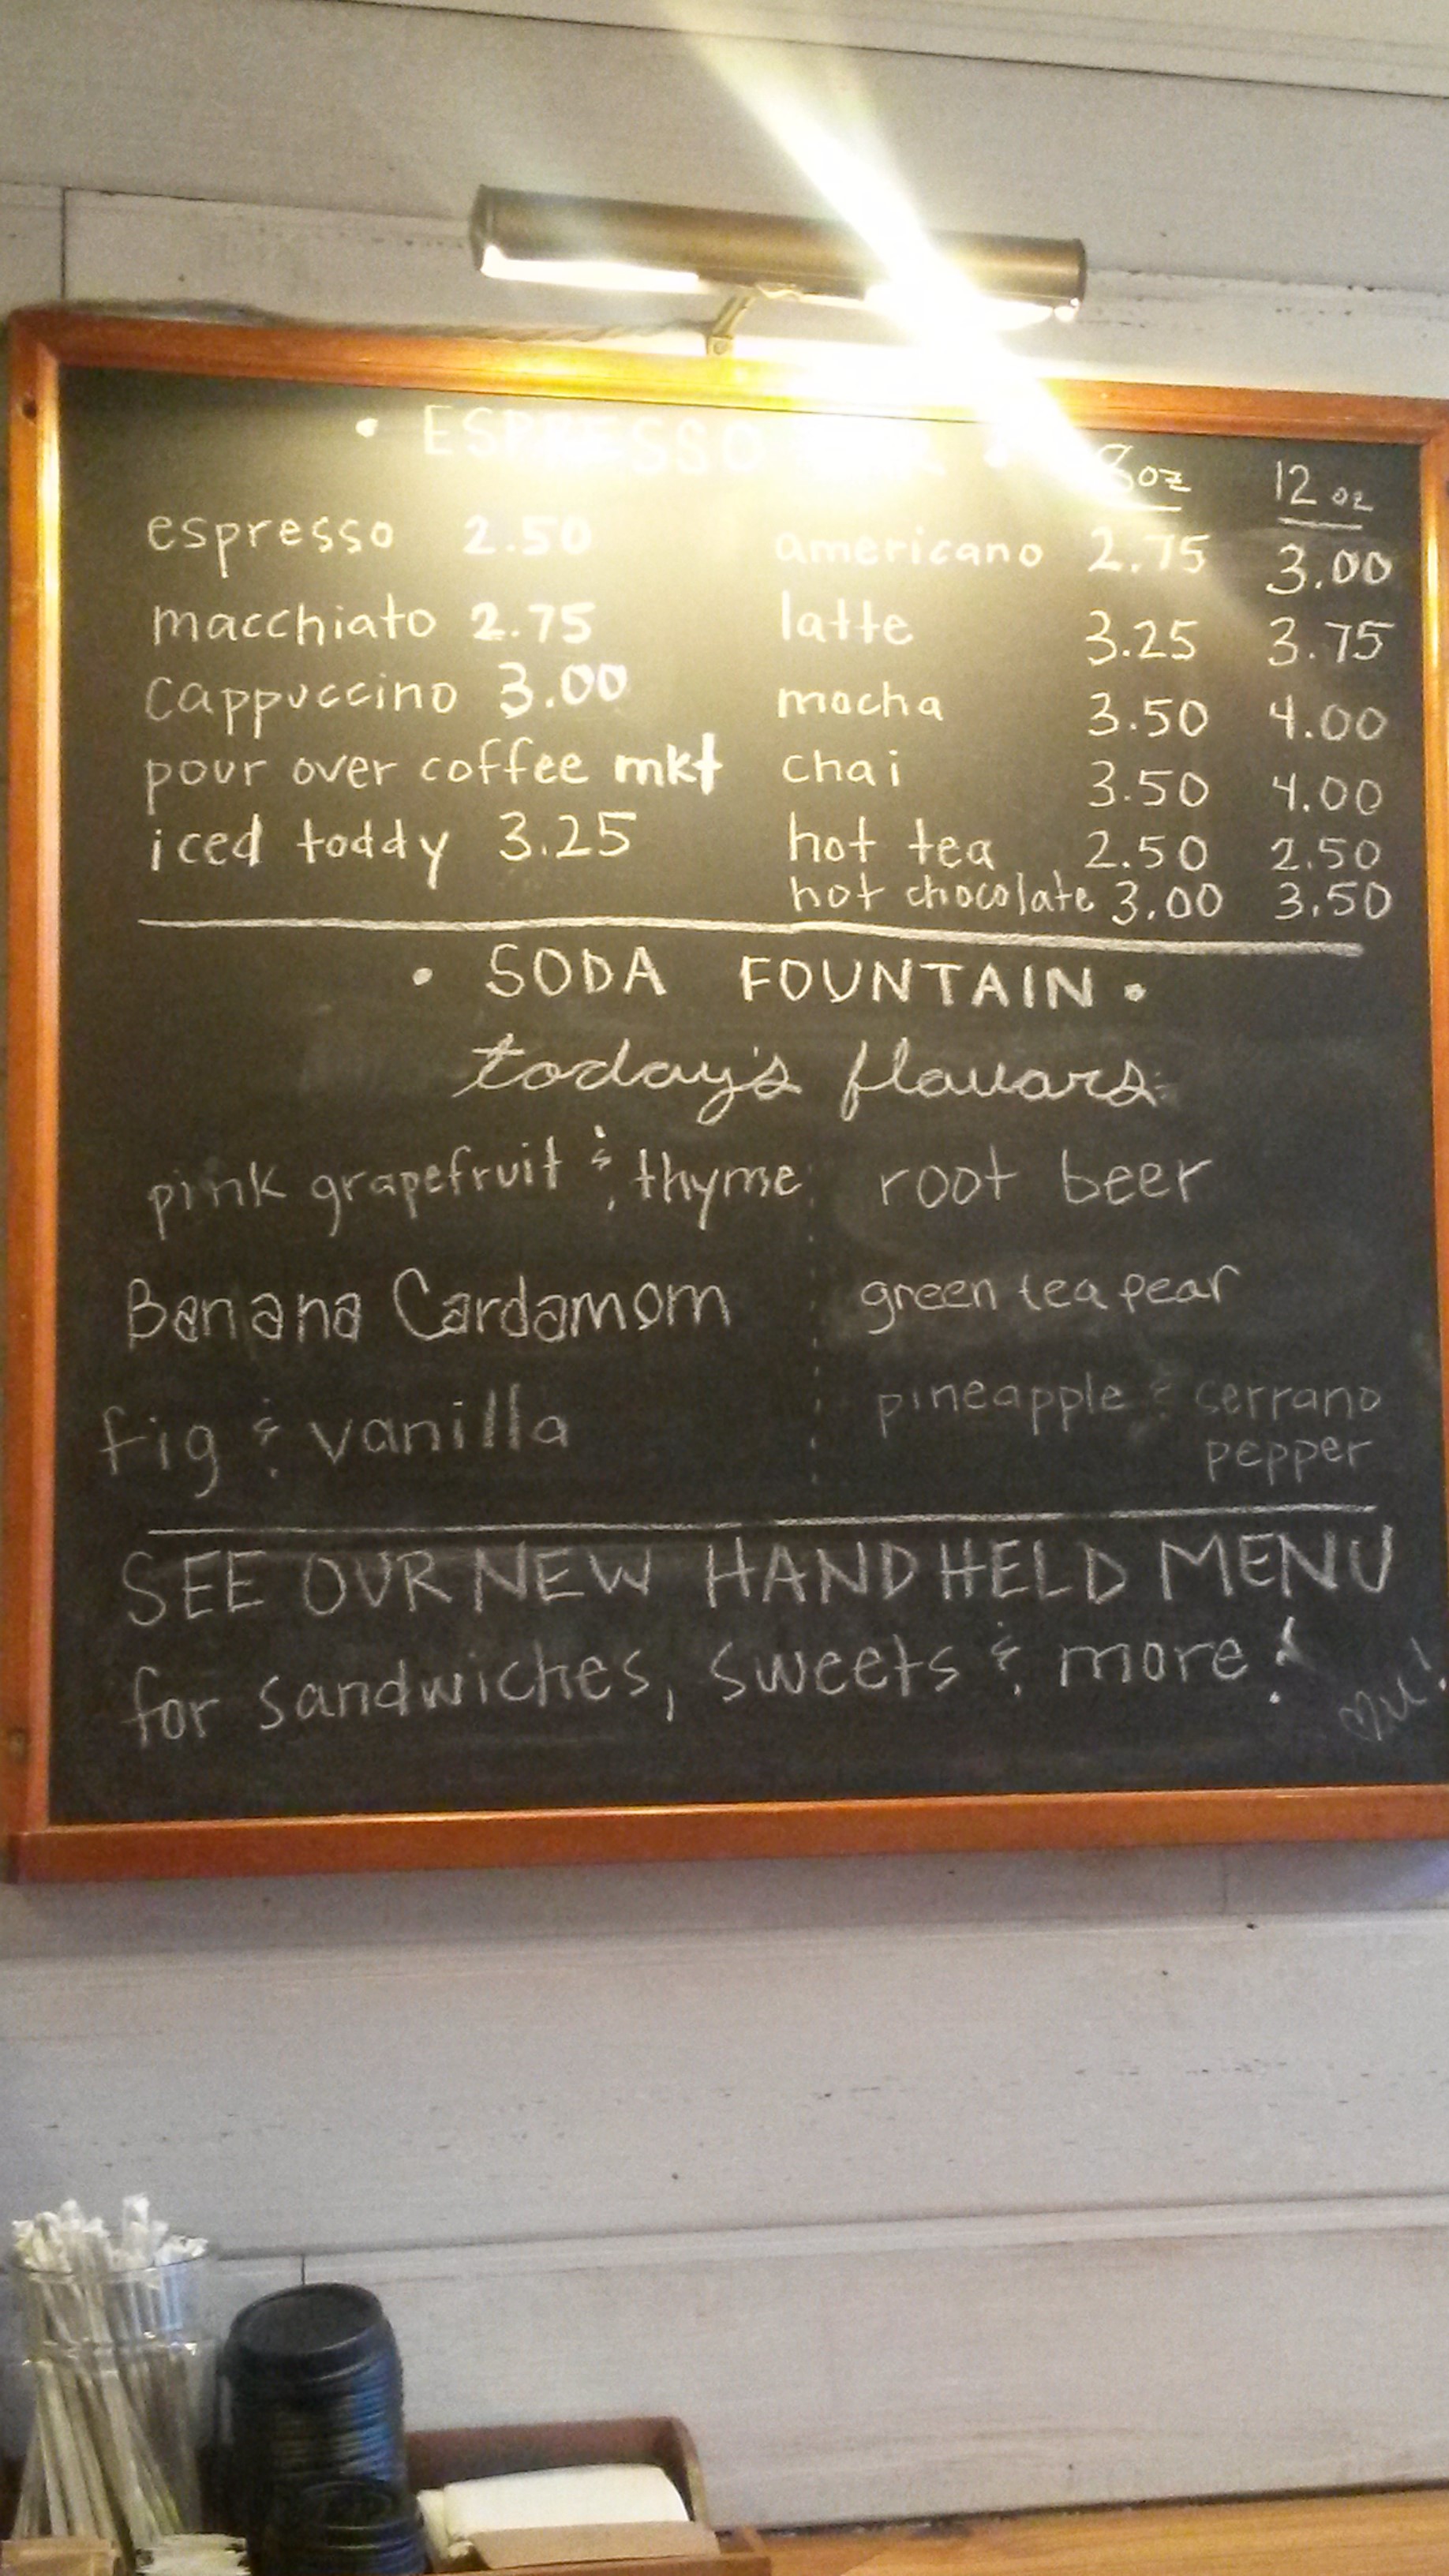 • ESPRESSO BAR •
8oz 12 oz
espresso 2.50
macchiato 2.75
Cappuccino 3.00
pour over coffee mkt
iced toddy 3.25
americano 2.75 3.00
latte 3.25 3.75
mocha 3.50 4.00
chai 3.50 4.00
hot tea 2.50 2.50
hot chocolate 3.00 3.50
• SODA FOUNTAIN •
today's flavors
pink grapefruit & thyme
Banana Cardamom
fig & vanilla
root beer
green tea pear
pineapple & serrano
pepper
SEE OUR NEW HANDHELD MENU
for sandwiches, sweets & more!